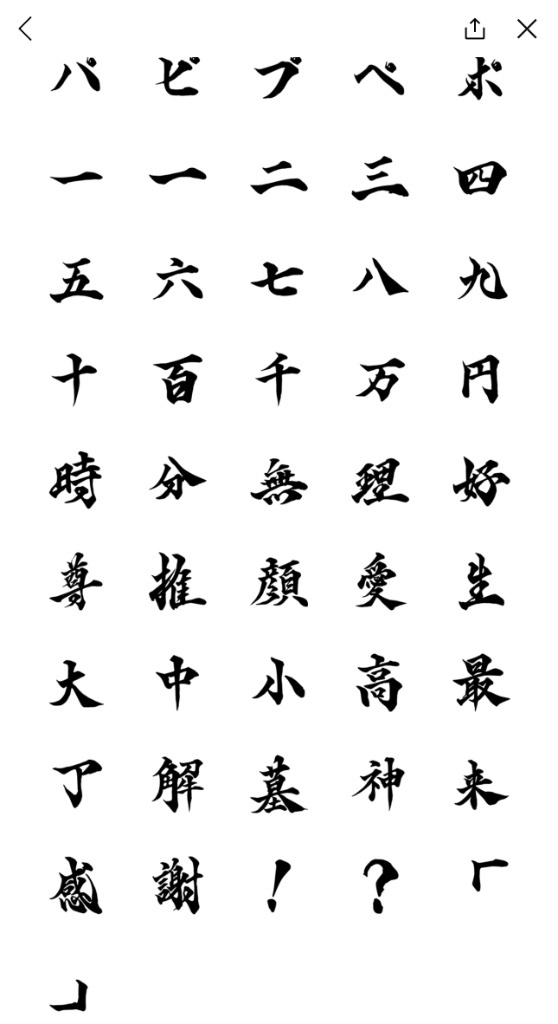 パ ピ プ ペ ポ
ー 一 二 三 四
五 六 七 八 九
十 百 千 万 円
時 分 無 理 好
尊 推 顔 愛 生
大 中 小 高 最
了 解 墓 神 来
感 謝 ! ? 「
」